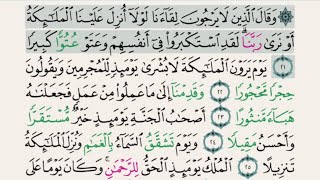 ۞ وَقَالَ ٱلَّذِينَ لَا يَرْجُونَ لِقَآءَنَا لَوْلَآ أُنزِلَ عَلَيْنَا ٱلْمَلَٰٓئِكَةُ
أَوْ نَرَىٰ رَبَّنَا ۗ لَقَدِ ٱسْتَكْبَرُوا۟ فِىٓ أَنفُسِهِمْ وَعَتَوْ عُتُوًّا كَبِيرًا
٢١ يَوْمَ يَرَوْنَ ٱلْمَلَٰٓئِكَةَ لَا بُشْرَىٰ يَوْمَئِذٍ لِّلْمُجْرِمِينَ وَيَقُولُونَ
حِجْرًا مَّحْجُورًا ٢٢ وَقَدِمْنَآ إِلَىٰ مَا عَمِلُوا۟ مِنْ عَمَلٍ فَجَعَلْنَٰهُ
هَبَآءً مَّنثُورًا ٢٣ أَصْحَٰبُ ٱلْجَنَّةِ يَوْمَئِذٍ خَيْرٌ مُّسْتَقَرًّا
وَأَحْسَنُ مَقِيلًا ٢٤ وَيَوْمَ تَشَقَّقُ ٱلسَّمَآءُ بِٱلْغَمَٰمِ وَنُزِّلَ ٱلْمَلَٰٓئِكَةُ
تَنزِيلًا ٢٥ ٱلْمُلْكُ يَوْمَئِذٍ ٱلْحَقُّ لِلرَّحْمَٰنِ ۚ وَكَانَ يَوْمًا عَلَى